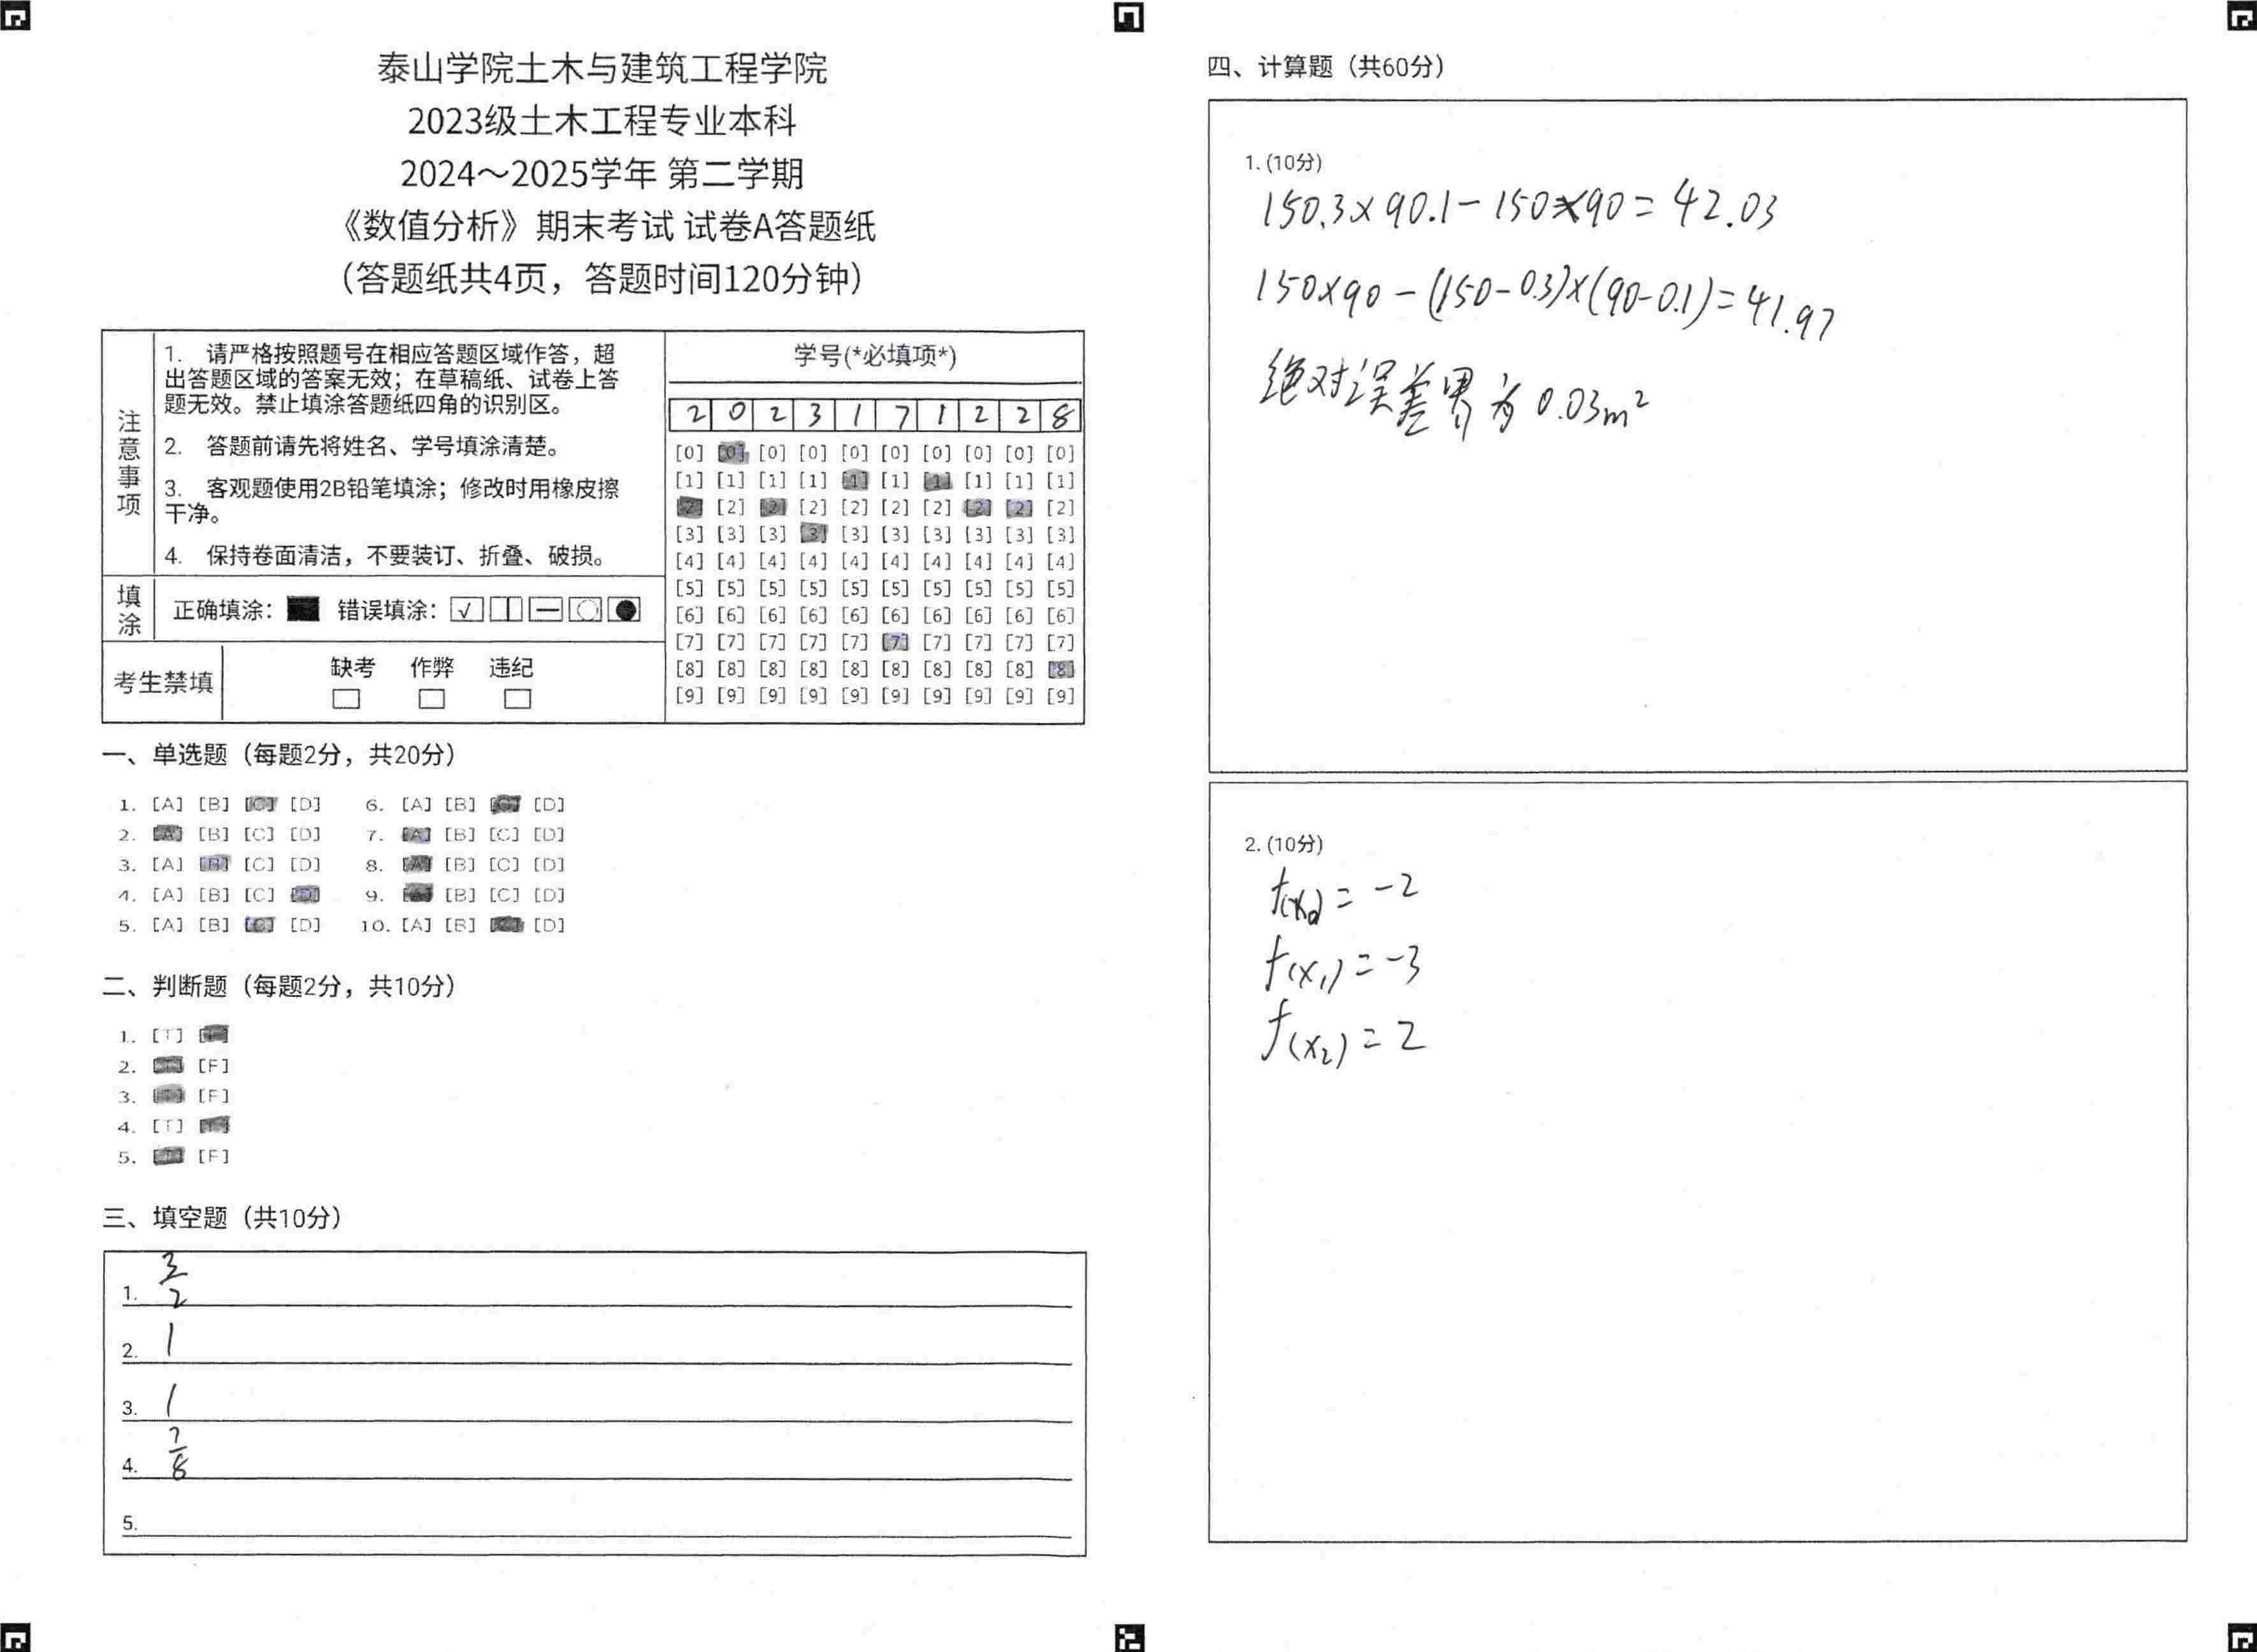 泰山学院土木与建筑工程学院
2023级土木工程专业本科
2024～2025学年 第二学期
《数值分析》期末考试 试卷A答题纸
（答题纸共4页，答题时间120分钟）
注意事项
1. 请严格按照题号在相应答题区域作答，超
出答题区域的答案无效；在草稿纸、试卷上答
题无效。禁止填涂答题纸四角的识别区。
2. 答题前请先将姓名、学号填涂清楚。
3. 客观题使用2B铅笔填涂；修改时用橡皮擦
干净。
4. 保持卷面清洁，不要装订、折叠、破损。
填涂
正确填涂： 错误填涂：
考生禁填
缺考 作弊 违纪
学号(*必填项*)
2 0 2 3 1 7 1 2 2 8
[0] [0] [0] [0] [0] [0] [0] [0] [0] [0]
[1] [1] [1] [1] [1] [1] [1] [1] [1] [1]
[2] [2] [2] [2] [2] [2] [2] [2] [2] [2]
[3] [3] [3] [3] [3] [3] [3] [3] [3] [3]
[4] [4] [4] [4] [4] [4] [4] [4] [4] [4]
[5] [5] [5] [5] [5] [5] [5] [5] [5] [5]
[6] [6] [6] [6] [6] [6] [6] [6] [6] [6]
[7] [7] [7] [7] [7] [7] [7] [7] [7] [7]
[8] [8] [8] [8] [8] [8] [8] [8] [8] [8]
[9] [9] [9] [9] [9] [9] [9] [9] [9] [9]
一、单选题（每题2分，共20分）
1. [A] [B] [C] [D] 6. [A] [B] [C] [D]
2. [A] [B] [C] [D] 7. [A] [B] [C] [D]
3. [A] [B] [C] [D] 8. [A] [B] [C] [D]
4. [A] [B] [C] [D] 9. [A] [B] [C] [D]
5. [A] [B] [C] [D] 10. [A] [B] [C] [D]
二、判断题（每题2分，共10分）
1. [T] [F]
2. [T] [F]
3. [T] [F]
4. [T] [F]
5. [T] [F]
三、填空题（共10分）
1. 3/2
2. 1
3. 1
4. 7/8
5.
四、计算题（共60分）
1. (10分)
150.3×90.1-150×90=42.03
150×90-(150-0.3)×(90-0.1)=41.97
绝对误差界为0.03m²
2. (10分)
f(x₀)=-2
f(x₁)=-3
f(x₂)=2